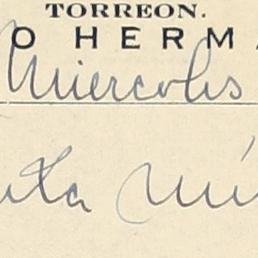 TORREON.
O HERMA
Miercoles
uta mí